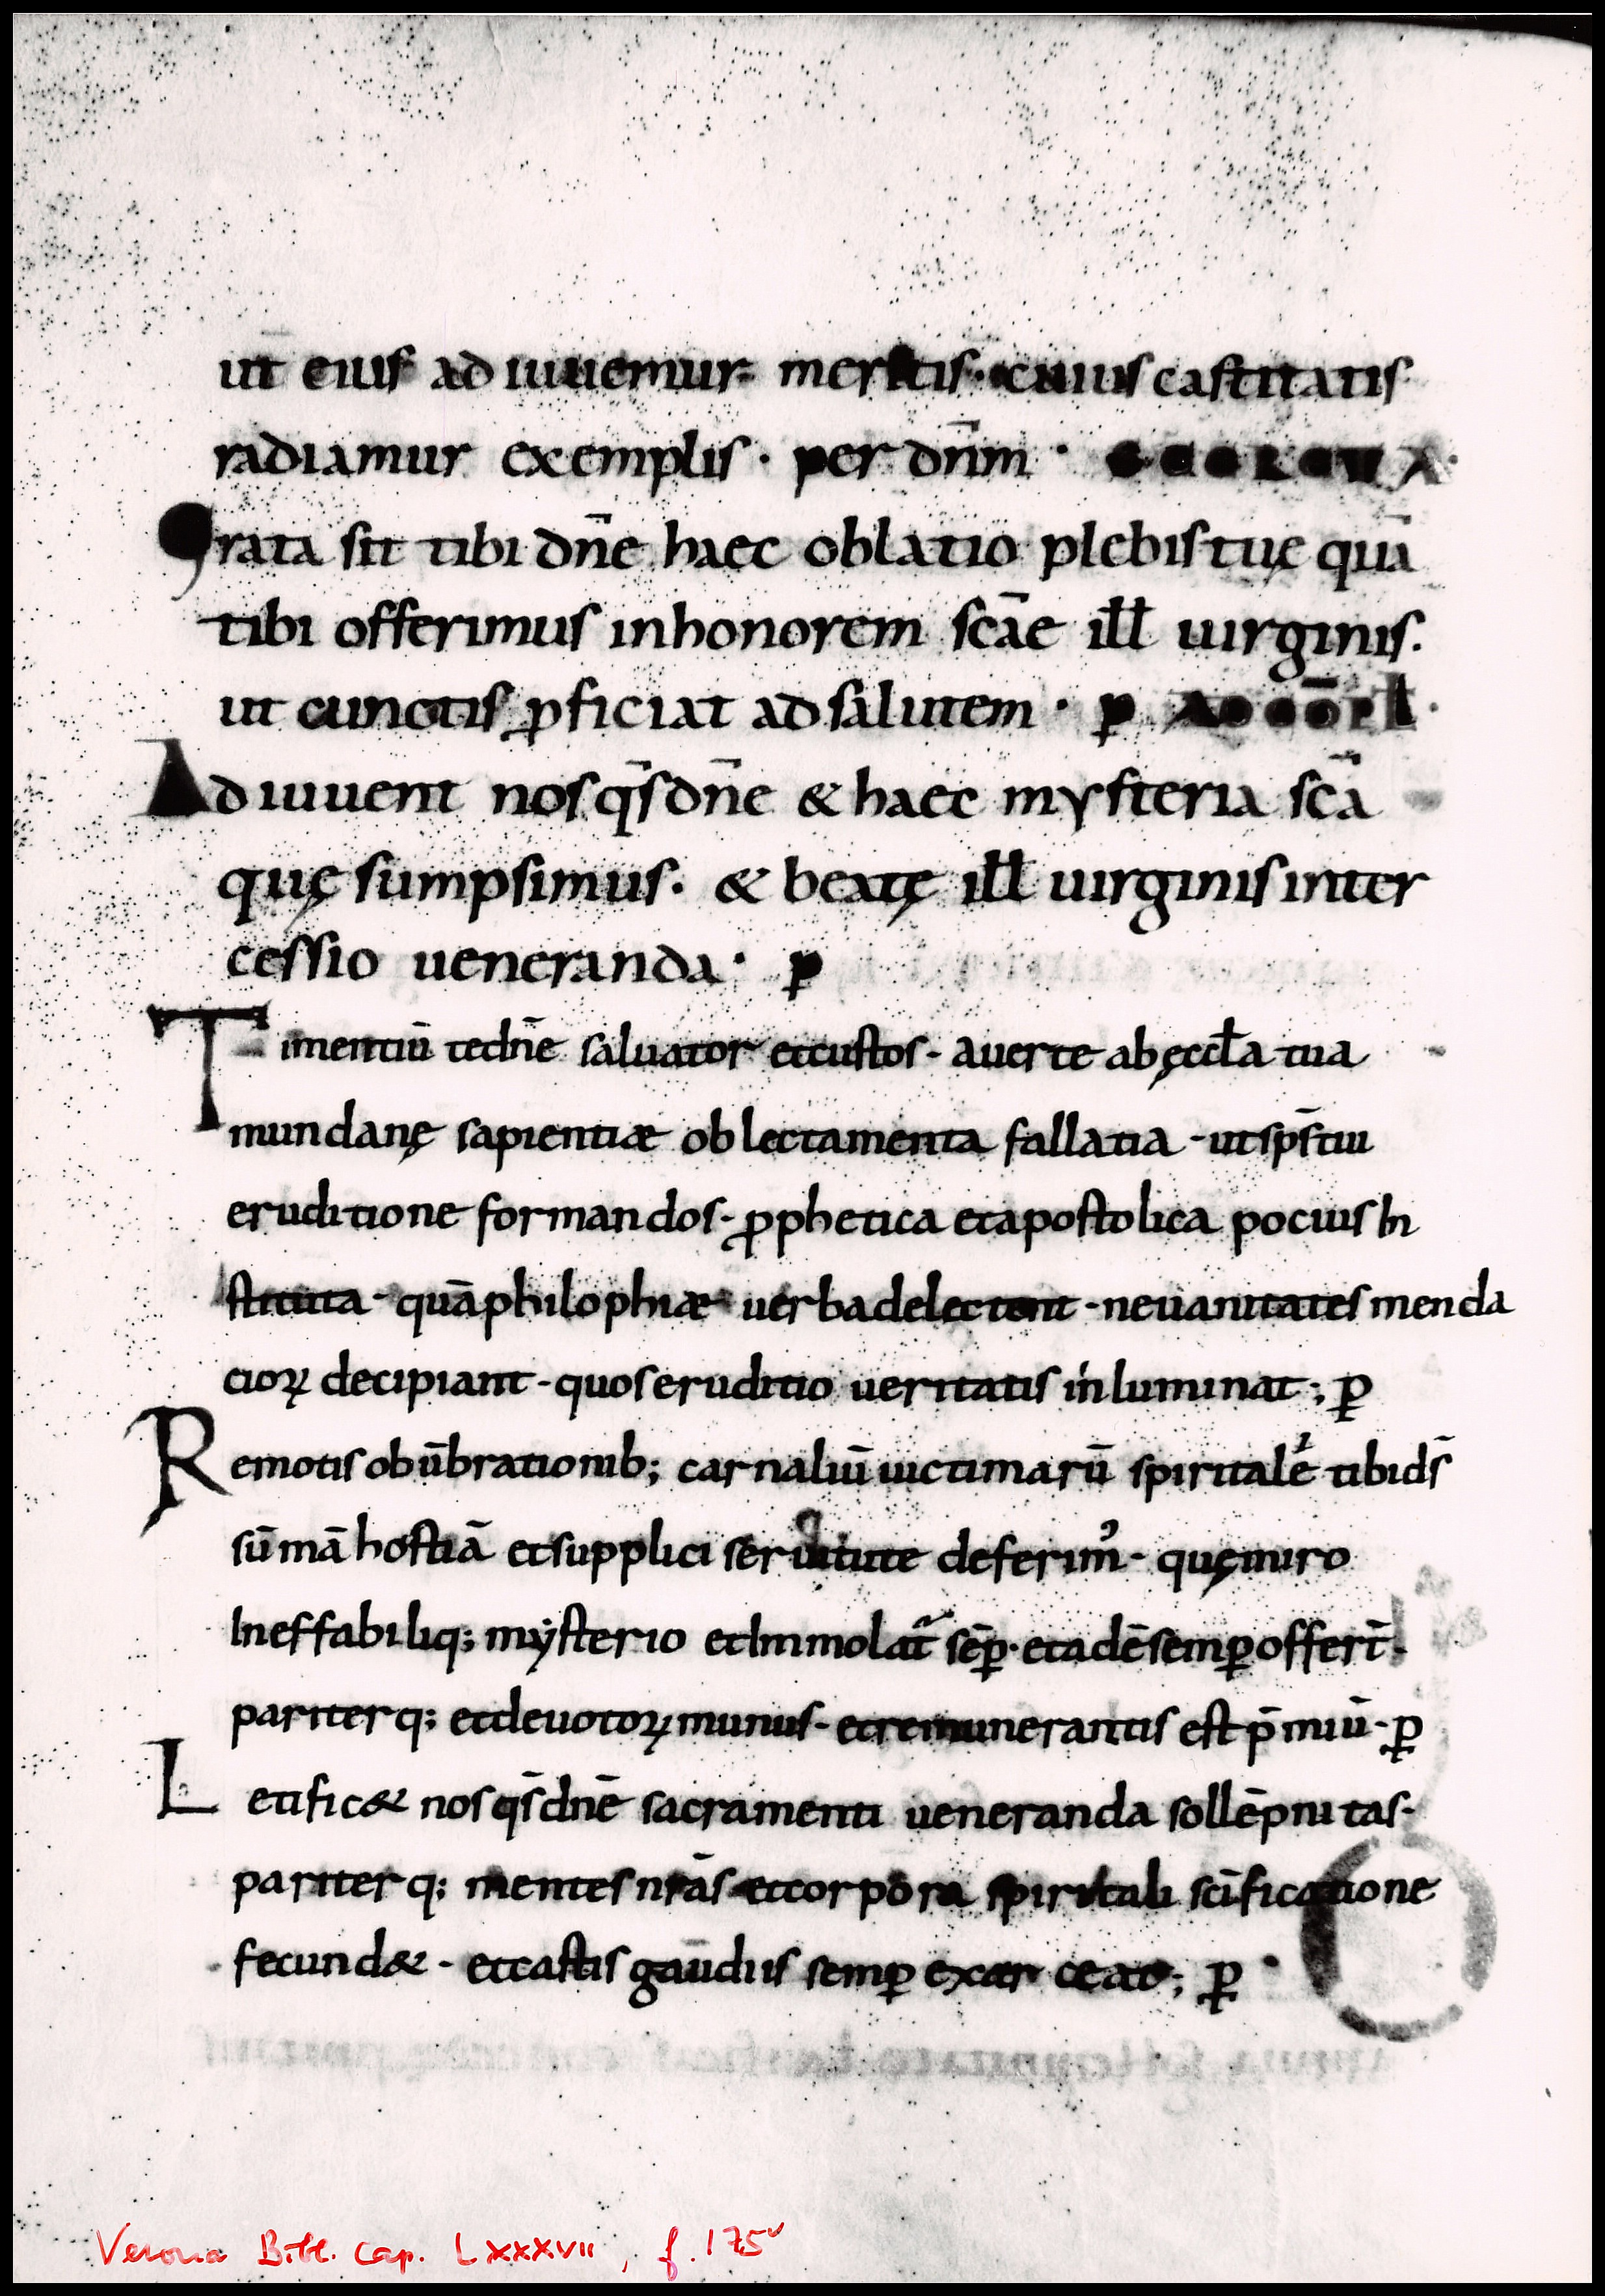 ut eius adiuuemur meritis· cuius castitatis
radiamur exemplis · per dn̄m ·
Grata sit tibi dn̄e haec oblatio plebis tuę quā
tibi offerimus inhonorem sc̄ae ill̄ uirginis.
ut cunctis ꝓficiat ad salutem · p̲ AD CŌPL·
Adiuuent nos q̄s dn̄e & haec mysteria sc̄a
quę sumpsimus· & beatę ill̄ uirginis inter
cessio ueneranda · p̲
Timentiū te dn̄e saluator et custos - auerte ab ęccl̄a tua
mundanę sapientiæ oblectamenta fallatia - ut sp̄s tui
eruditione formandos - ꝓphetica et apostolica pocius In
stituta - quā philophiæ uerba delectent - ne uanitates menda
cioꝝ decipiant - quos eruditio ueritatis inluminat ; ꝑ
Remotis obūbrationib; carnaliū uictimarū spiritalē tibi ds̄
sūmā hostiā et supplici seruitute deferim᾽ - quę miro
Ineffabiliq; mẏsterio et Immolat̄ sēꝑ · et adē semꝑ offert̄ -
pariterq; et deuotoꝝ munus - et remunerantis est p̄miū - ꝑ
Letific& nos q̄s dn̄ē sacramenti ueneranda sollēpnitas -
pariterq; mentes nr̄as et corpora spiritali sc̄ificatione
fecund& - et castis gaudiis semꝑ exerceat ; ꝑ
Verona Bibl. cap. LXXXVII, f. 175v